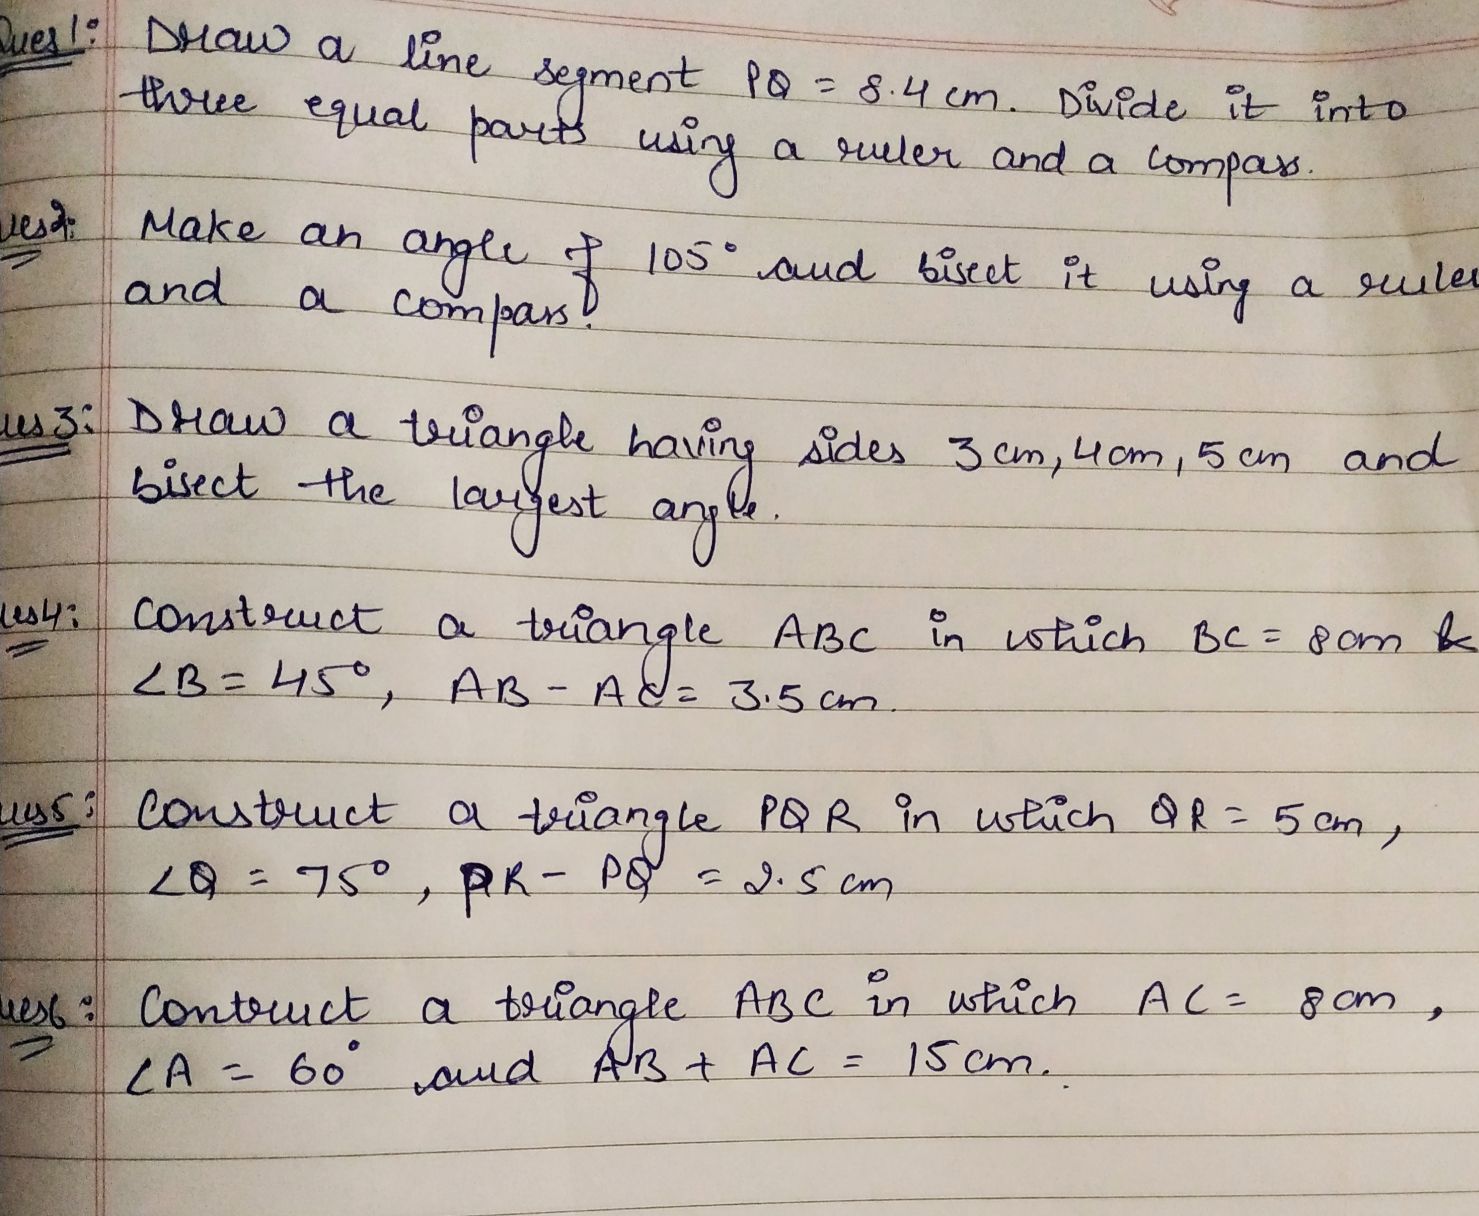 Ques1: Draw a line segment PQ = 8.4 cm. Divide it into
three equal parts using a ruler and a compass.
ues2: Make an angle of 105° and bisect it using a ruler
and a compass.
ues3: Draw a triangle having sides 3 cm, 4 cm, 5 cm and
bisect the largest angle.
ues4: Construct a triangle ABC in which BC = 8 cm &
∠B = 45°, AB - AC = 3.5 cm.
ues5: Construct a triangle PQR in which QR = 5 cm,
∠Q = 75°, PR - PQ = 2.5 cm
ues6: Contruct a triangle ABC in which AC = 8 cm,
∠A = 60° and AB + AC = 15 cm.